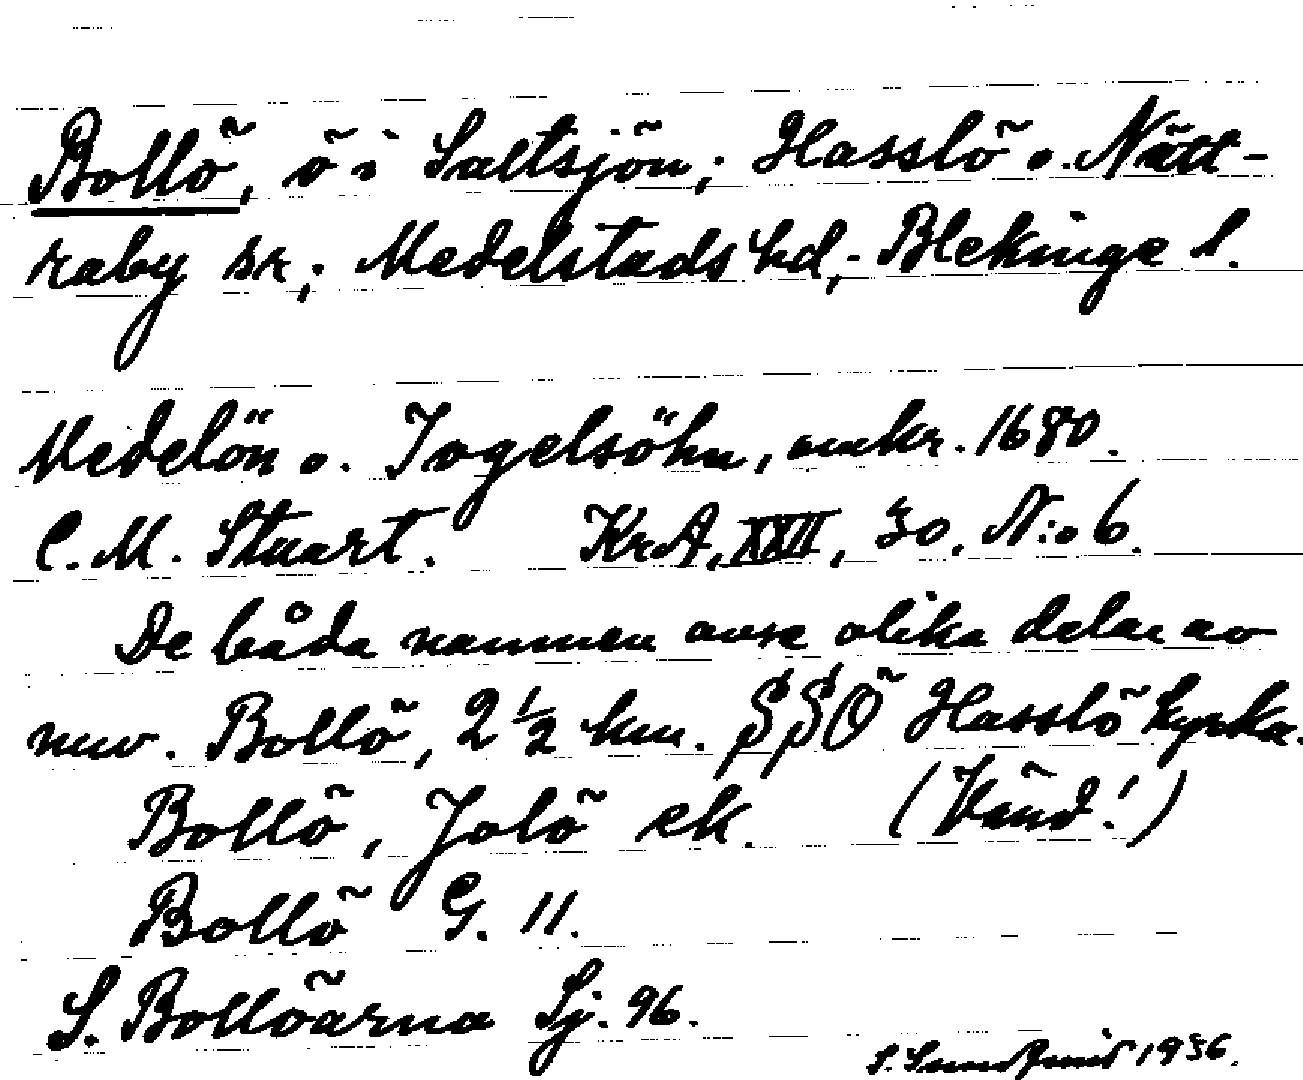 Bollö, ö i Saltsjön; Hasslö o. Nätt-
raby sn; Medelstads hd; Blekinge l.
Medelön o. Jogelsöhn, omkr. 1680.
C. M. Stuart. KrA, XXII, 30, N:o 6.
De båda namnen avse olika delar av
nuv. Bollö, 2 1/2 km. SSÖ Hasslö kyrka.
Bollö, Jolö ek. (Vänd!)
Bollö G. 11.
S. Bollöarna Sj. 96.
1936.